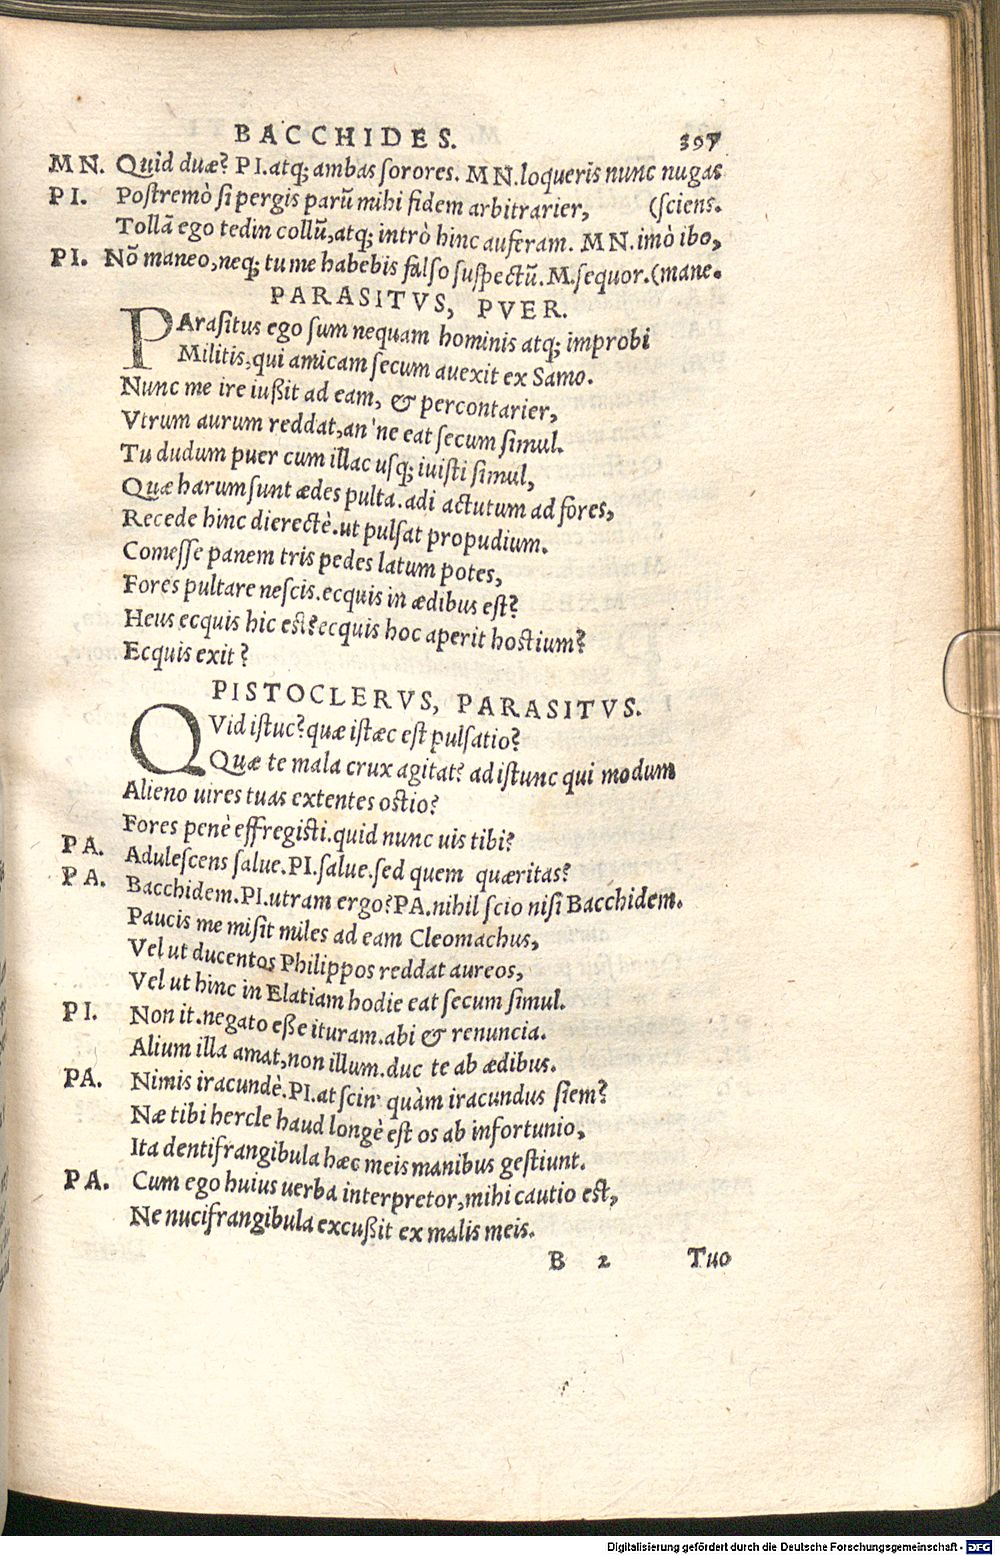 BACCHIDES. 397
MN. Quid duæ? PI.atq; ambas sorores. MN.loqueris nunc nugas
PI. Postremò si pergis parū mihi fidem arbitrarier, (sciens.
Tollā ego tedin collū,atq; intrò hinc auferam. MN. imò ibo,
PI. Nō maneo,neq; tu me habebis falso suspectū. M.sequor.(mane.
PARASITVS, PVER.
PArasitus ego sum nequam hominis atq; improbi
Militis,qui amicam secum auexit ex Samo.
Nunc me ire iußit ad eam, & percontarier,
Vtrum aurum reddat,an'ne eat secum simul.
Tu dudum puer cum illac usq; iuisti simul,
Quæ harum sunt ædes pulta.adi actutum ad fores,
Recede hinc dierectè.ut pulsat propudium.
Comesse panem tris pedes latum potes,
Fores pultare nescis.ecquis in ædibus est?
Heus ecquis hic est?ecquis hoc aperit hostium?
Ecquis exit?
PISTOCLERVS, PARASITVS.
QVid istuc?quæ istæc est pulsatio?
Quæ te mala crux agitat? ad istunc qui modum
Alieno uires tuas extentes ostio?
Fores penè effregisti.quid nunc uis tibi?
PA. Adulescens salue.PI.salue.sed quem quæritas?
PA. Bacchidem.PI.utram ergo?PA.nihil scio nisi Bacchidem.
Paucis me misit miles ad eam Cleomachus,
Vel ut ducentos Philippos reddat aureos,
Vel ut hinc in Elatiam hodie eat secum simul.
PI. Non it.negato eße ituram.abi & renuncia.
Alium illa amat,non illum.duc te ab ædibus.
PA. Nimis iracundè.PI.at scin' quàm iracundus siem?
Næ tibi hercle haud longè est os ab infortunio,
Ita dentifrangibula hæc meis manibus gestiunt.
PA. Cum ego huius uerba interpretor,mihi cautio est,
Ne nucifrangibula excußit ex malis meis.
B 2 Tuo
Digitalisierung gefördert durch die Deutsche Forschungsgemeinschaft - DFG